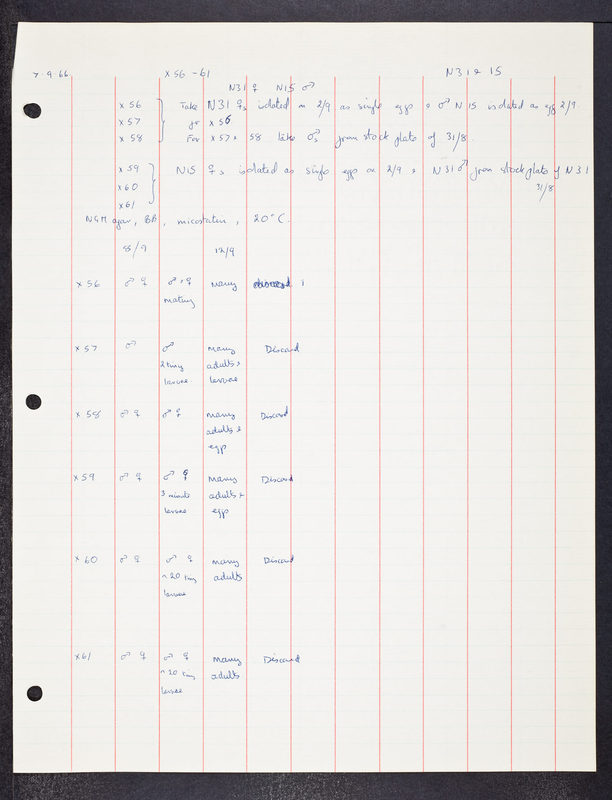 7.9.66 X 56 - 61 N31 & 15
N31 ♀ N15 ♂
X 56 Take N31 ♀s isolated on 2/9 as single eggs & ♂ N15 isolated as egg 2/9
X 57 for X 56
X 58 For X 57 & 58 take ♂s from stock plate of 31/8.
X 59 N15 ♀s isolated as single eggs on 2/9 & N31 ♂ from stock plate of N31
X 60 31/8
X 61
NGM agar, BB, micostatin, 20°C.
8/9 12/9
X 56 ♂ ♀ ♂ + ♀ Many
mating
X 57 ♂ ♂ Many Discard
2 tiny adults &
larvae larvae
X 58 ♂ ♀ ♂ ♀ Many Discard
adults &
eggs
X 59 ♂ ♀ ♂ ♀ Many Discard
3 minute adults &
larvae eggs
X 60 ♂ ♀ ♂ ♀ Many Discard
~20 tiny adults
larvae
X 61 ♂ ♀ ♂ ♀ Many Discard
~20 tiny adults
larvae